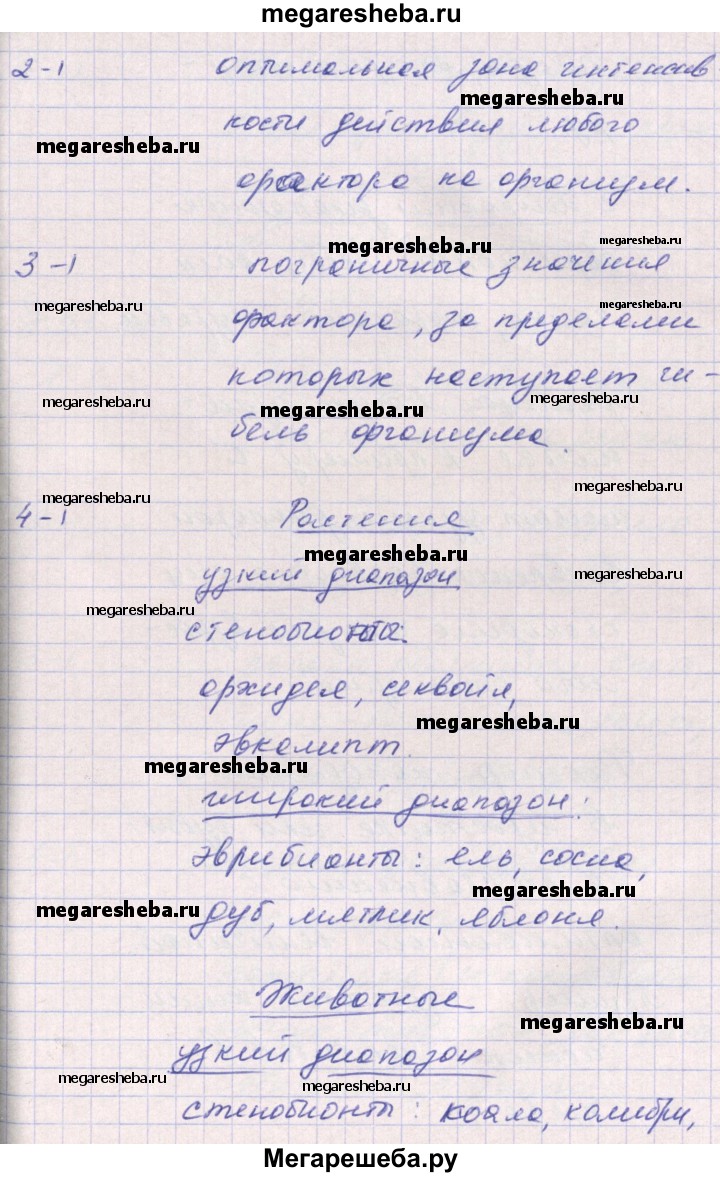 megaresheba.ru
2-1 оптимальная зона интенсив
megaresheba.ru
ности действия любого
megaresheba.ru
фактора на организм.
megaresheba.ru
megaresheba.ru
3-1 пограничные значения
megaresheba.ru
megaresheba.ru
фактора, за пределами
которых наступает ги-
megaresheba.ru
megaresheba.ru
megaresheba.ru
бель организма.
megaresheba.ru
megaresheba.ru
4-1 Растения
megaresheba.ru
узкий диапазон
megaresheba.ru
megaresheba.ru
стенобионты:
орхидея, секвойя,
megaresheba.ru
эвкалипт.
megaresheba.ru
широкий диапазон:
эврибианты: ель, сосна,
megaresheba.ru
megaresheba.ru
дуб, мятлик, яблоня.
Животные
megaresheba.ru
узкий диапазон
megaresheba.ru
megaresheba.ru
стенобионты: коала, колибри,
Мегарешеба.ру